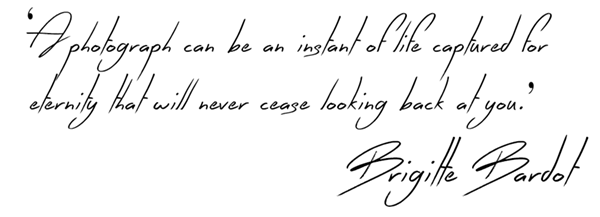 ‘A photograph can be an instant of life captured for
eternity that will never cease looking back at you.’
Brigitte Bardot